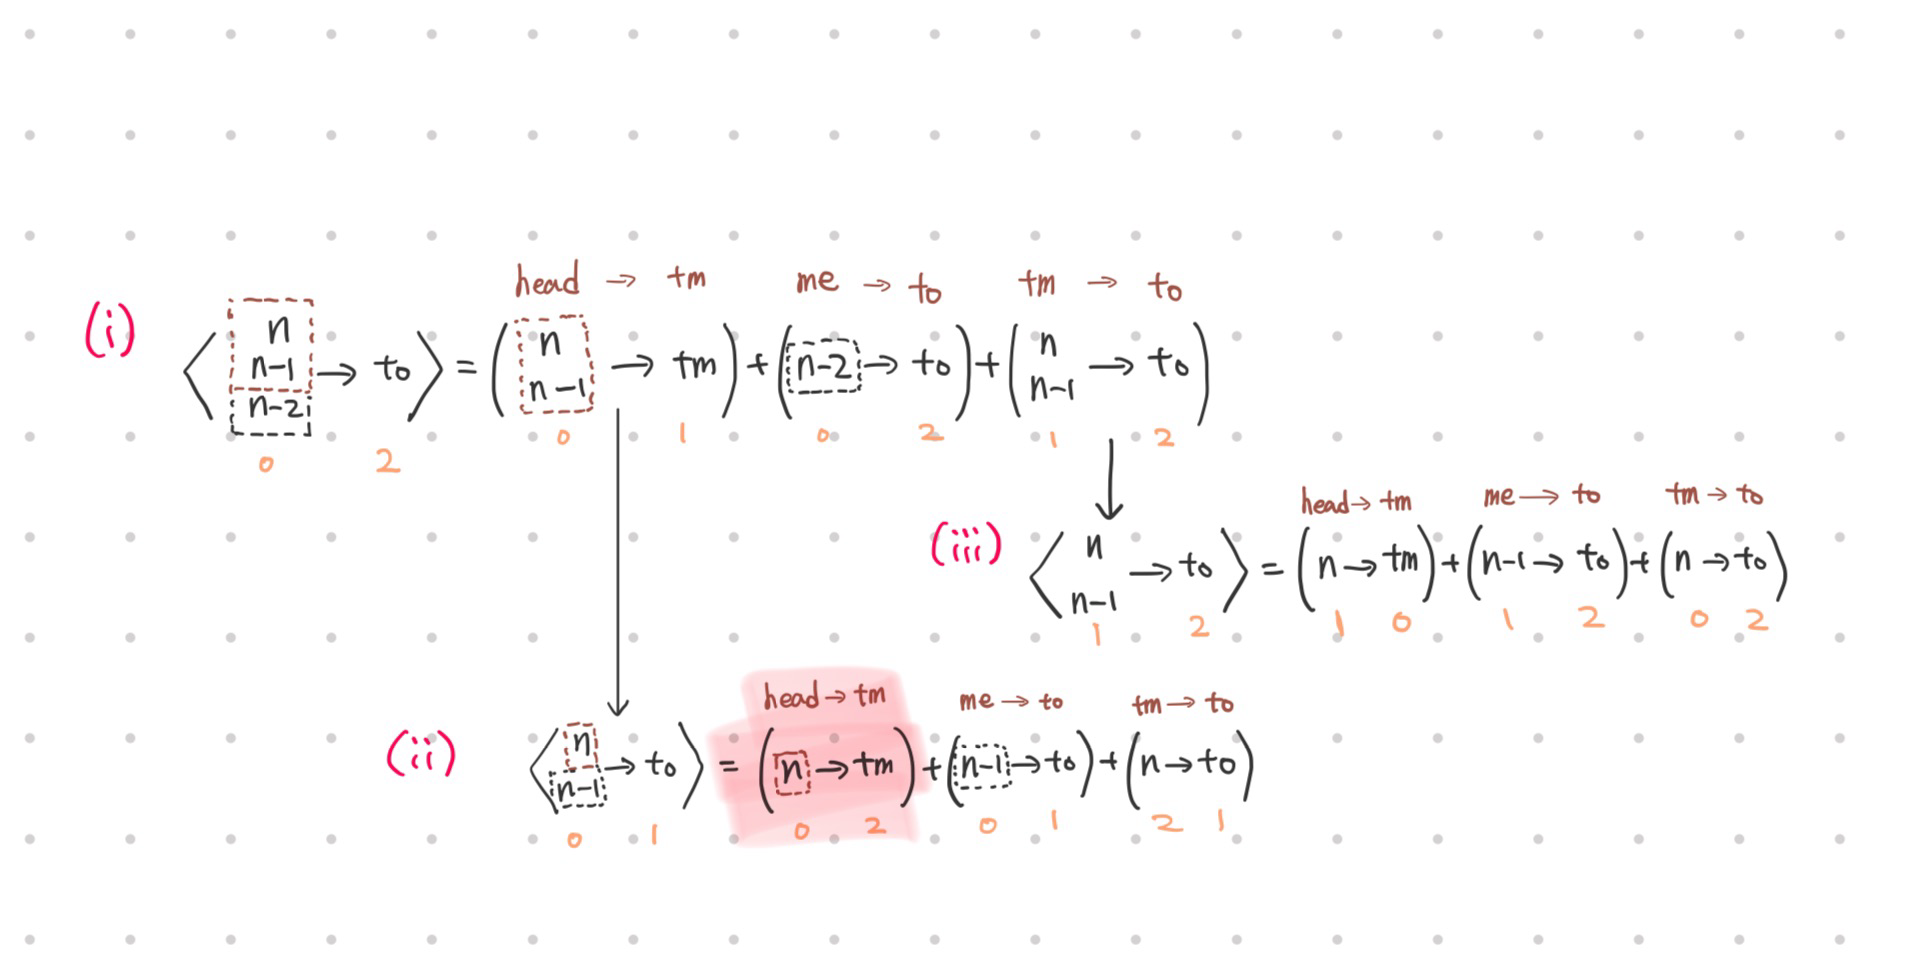 head → tm me → to tm → to
(i) ⟨ n n-1 n-2 → to ⟩ = ( n n-1 → tm ) + ( n-2 → to ) + ( n n-1 → to )
0 2 0 1 0 2 1 2
head → tm me → to tm → to
(iii) ⟨ n n-1 → to ⟩ = ( n → tm ) + ( n-1 → to ) + ( n → to )
1 2 1 0 1 2 0 2
head → tm me → to tm → to
(ii) ⟨ n n-1 → to ⟩ = ( n → tm ) + ( n-1 → to ) + ( n → to )
0 1 0 2 0 1 2 1